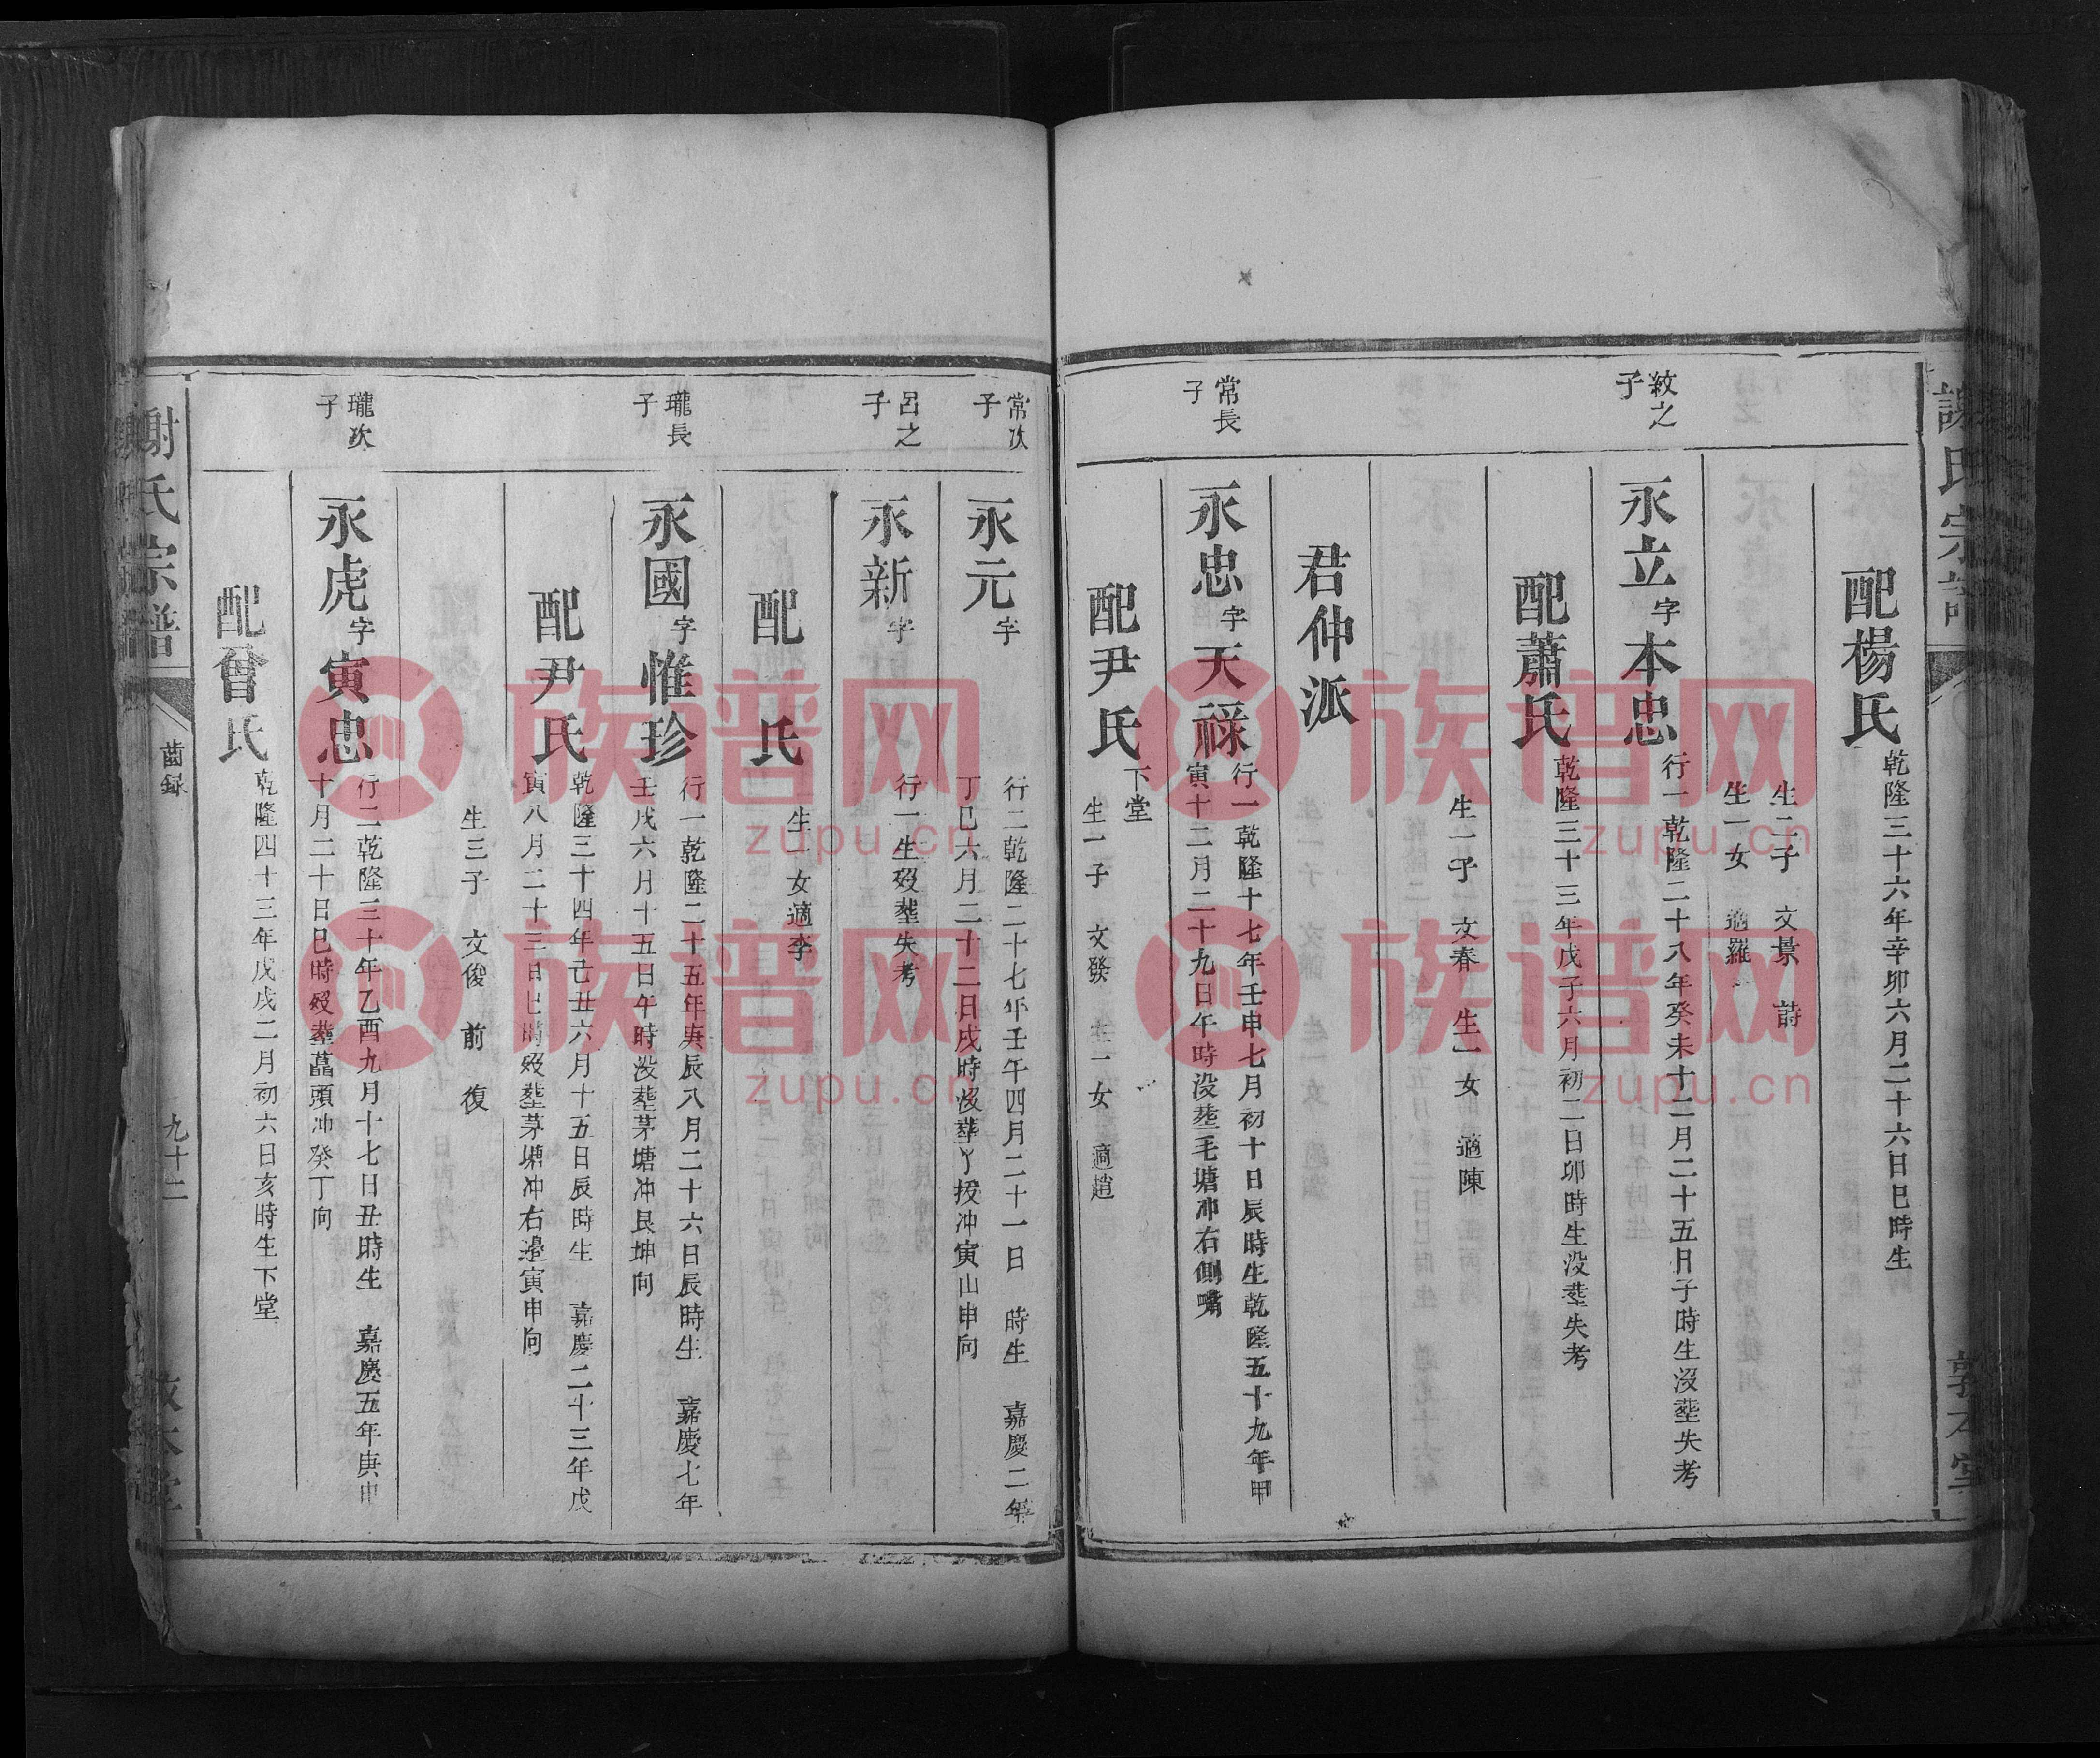 謝氏宗譜
敦本堂
配楊氏
乾隆三十六年辛卯六月二十六日巳時生
生二子 文景 詩
生一女 適羅
紋之子
永立字本忠
行一乾隆二十八年癸未十二月二十五日子時生沒塟失考
配蕭氏
乾隆三十三年戊子六月初二日卯時生沒塟失考
生一子 文春 生一女 適陳
君仲派
常長子
永忠字天祿
行一乾隆十七年壬申七月初十日辰時生乾隆五十九年甲
寅十二月二十九日午時沒塟毛塘冲右側嘴
配尹氏
下堂
生一子 文發 生一女 適趙
常次子
永元字
行二乾隆二十七年壬午四月二十一日 時生 嘉慶二年
丁巳六月二十二日戌時沒塟丫援冲寅山申向
呂之子
永新字
行一生歿塟失考
配 氏
生一女適李
瓏長子
永國字惟珍
行一乾隆二十五年庚辰八月二十六日辰時生 嘉慶七年
壬戌六月十五日午時沒塟茅塘冲艮坤向
配尹氏
乾隆三十四年己丑六月十五日辰時生 嘉慶二十三年戊
寅八月二十三日巳時歿塟茅塘冲右邊寅申向
生三子 文俊 前 復
瓏次子
永虎字寅忠
行二乾隆三十年乙酉九月十七日丑時生 嘉慶五年庚申
十月二十日巳時歿塟藠頭冲癸丁向
配曾氏
乾隆四十三年戊戌二月初六日亥時生下堂
謝氏宗譜
齒録
九十二
敦本堂
族谱网
zupu.cn
族谱网
zupu.cn
族谱网
zupu.cn
族谱网
zupu.cn